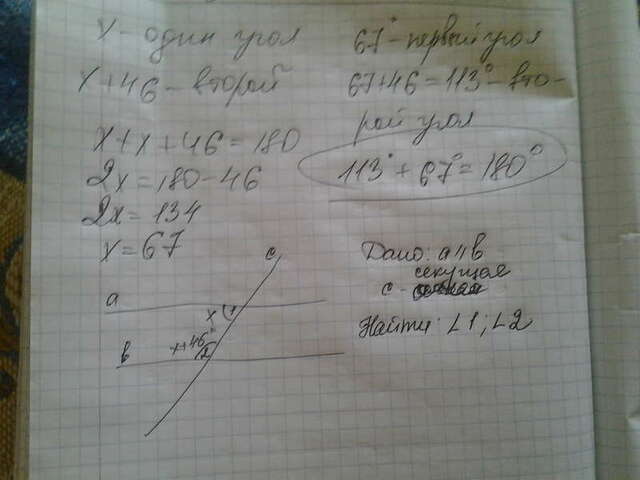 x - один угол
x+46 - второй
x+x+46=180
2x=180-46
2x=134
x=67
67° - первый угол
67+46=113° - вто-
рой угол
113°+67°=180°
Дано: a || b
секущая
c -
Найти: ∠1; ∠2
c
a
x 1
b
x+46°
2